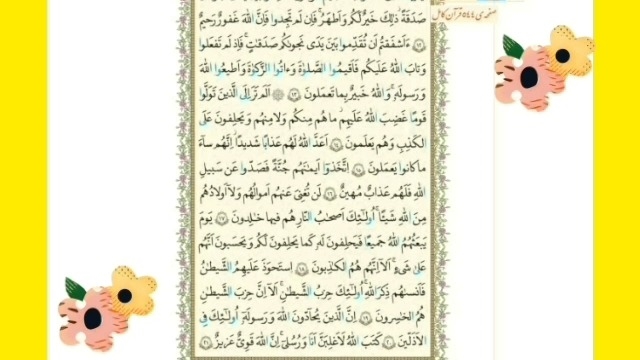 صفحه‌ی ۵۴۴ قرآن کامل
صَدَقَةً ذٰلِكَ خَيْرٌ لَكُمْ وَاَطْهَرُ فَاِنْ لَمْ تَجِدُوا فَاِنَّ اللّٰهَ غَفُورٌ رَحِيمٌ
﴿١٢﴾ ءَاَشْفَقْتُمْ اَنْ تُقَدِّمُوا بَيْنَ يَدَیْ نَجْوٰىكُمْ صَدَقَاتٍ فَاِذْ لَمْ تَفْعَلُوا
وَتَابَ اللّٰهُ عَلَيْكُمْ فَاَقِيمُوا الصَّلٰوةَ وَءَاتُوا الزَّكٰوةَ وَاَطِيعُوا اللّٰهَ
وَرَسُولَهُ وَاللّٰهُ خَبِيرٌ بِمَا تَعْمَلُونَ ﴿١٣﴾ اَلَمْ تَرَ اِلَى الَّذِينَ تَوَلَّوْا
قَوْمًا غَضِبَ اللّٰهُ عَلَيْهِمْ مَا هُمْ مِنْكُمْ وَلَا مِنْهُمْ وَيَحْلِفُونَ عَلَی
الْكَذِبِ وَهُمْ يَعْلَمُونَ ﴿١٤﴾ اَعَدَّ اللّٰهُ لَهُمْ عَذَابًا شَدِيدًا اِنَّهُمْ سَاءَ
مَا كَانُوا يَعْمَلُونَ ﴿١٥﴾ اِتَّخَذُوا اَيْمَانَهُمْ جُنَّةً فَصَدُّوا عَنْ سَبِيلِ
اللّٰهِ فَلَهُمْ عَذَابٌ مُهِينٌ ﴿١٦﴾ لَنْ تُغْنِیَ عَنْهُمْ اَمْوَالُهُمْ وَلَا اَوْلَادُهُمْ
مِنَ اللّٰهِ شَيْئًا اُولٰئِكَ اَصْحَابُ النَّارِ هُمْ فِيهَا خَالِدُونَ ﴿١٧﴾ يَوْمَ
يَبْعَثُهُمُ اللّٰهُ جَمِيعًا فَيَحْلِفُونَ لَهُ كَمَا يَحْلِفُونَ لَكُمْ وَيَحْسَبُونَ اَنَّهُمْ
عَلٰى شَیْءٍ اَلَا اِنَّهُمْ هُمُ الْكَاذِبُونَ ﴿١٨﴾ اِسْتَحْوَذَ عَلَيْهِمُ الشَّيْطَانُ
فَاَنْسٰىهُمْ ذِكْرَ اللّٰهِ اُولٰئِكَ حِزْبُ الشَّيْطَانِ اَلَا اِنَّ حِزْبَ الشَّيْطَانِ
هُمُ الْخَاسِرُونَ ﴿١٩﴾ اِنَّ الَّذِينَ يُحَادُّونَ اللّٰهَ وَرَسُولَهُ اُولٰئِكَ فِی
الْاَذَلِّينَ ﴿٢٠﴾ كَتَبَ اللّٰهُ لَاَغْلِبَنَّ اَنَا وَرُسُلِی اِنَّ اللّٰهَ قَوِیٌّ عَزِيزٌ ﴿٢١﴾